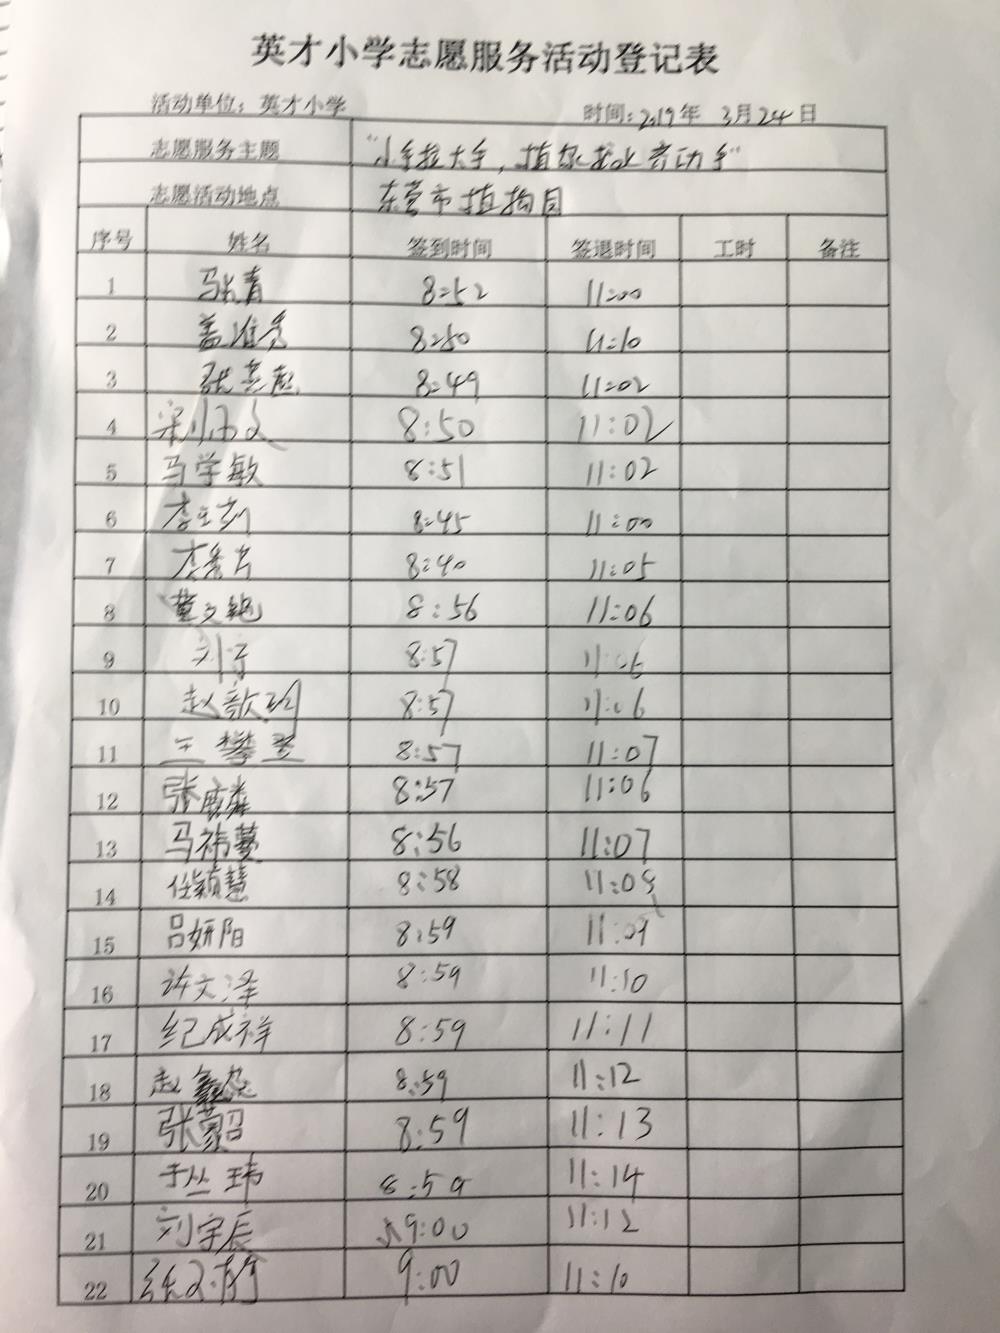 英才小学志愿服务活动登记表
活动单位：英才小学 时间：2019年 3月24日
志愿服务主题 "小手拉大手，植绿护绿齐动手"
志愿活动地点 东营市植物园
序号 姓名 签到时间 签退时间 工时 备注
1 马长青 8:52 11:00
2 盖 8:50 11:10
3 张 8:49 11:02
4 8:50 11:02
5 马学敏 8:51 11:02
6 李 8:45 11:00
7 李 8:40 11:05
8 董文 8:56 11:06
9 刘 8:57 11:06
10 赵歆 8:57 11:06
11 王攀登 8:57 11:07
12 张 8:57 11:06
13 马祎蔓 8:56 11:07
14 任颖慧 8:58 11:09
15 吕妍阳 8:59 11:09
16 许文泽 8:59 11:10
17 纪成祥 8:59 11:11
18 赵鑫 8:59 11:12
19 张 8:59 11:13
20 于丛玮 8:59 11:14
21 刘宇辰 9:00 11:12
22 张 9:00 11:10